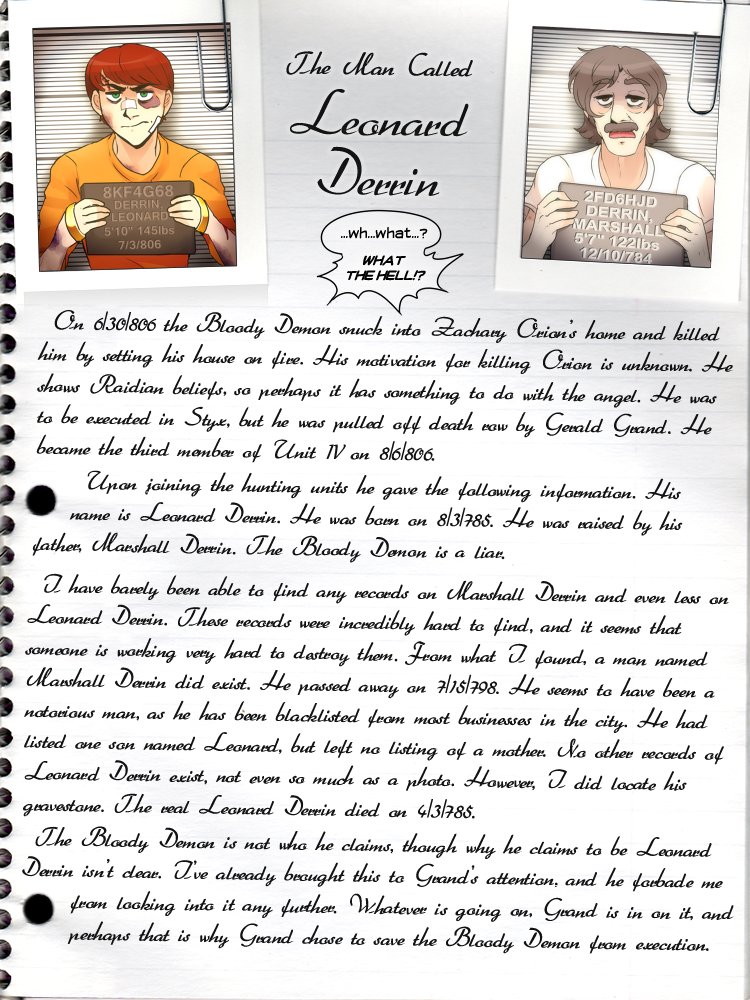 The Man Called
Leonard
Derrin
8KF4G68
DERRIN,
LEONARD
5'10" 145lbs
7/3/806
2FD6HJD
DERRIN,
MARSHALL
5'7" 122lbs
12/10/784
...wh...what...?
WHAT
THE HELL!?
On 6/30/806 the Bloody Demon snuck into Zachary Orion's home and killed
him by setting his house on fire. His motivation for killing Orion is unknown. He
shows Raidian beliefs, so perhaps it has something to do with the angel. He was
to be executed in Styx, but he was pulled off death row by Gerald Grand. He
became the third member of Unit IV on 8/6/806.
Upon joining the hunting units he gave the following information. His
name is Leonard Derrin. He was born on 8/3/785. He was raised by his
father, Marshall Derrin. The Bloody Demon is a liar.
I have barely been able to find any records on Marshall Derrin and even less on
Leonard Derrin. These records were incredibly hard to find, and it seems that
someone is working very hard to destroy them. From what I found, a man named
Marshall Derrin did exist. He passed away on 7/15/798. He seems to have been a
notorious man, as he has been blacklisted from most businesses in the city. He had
listed one son named Leonard, but left no listing of a mother. No other records of
Leonard Derrin exist, not even so much as a photo. However, I did locate his
gravestone. The real Leonard Derrin died on 4/3/785.
The Bloody Demon is not who he claims, though why he claims to be Leonard
Derrin isn't clear. I've already brought this to Grand's attention, and he forbade me
from looking into it any further. Whatever is going on, Grand is in on it, and
perhaps that is why Grand chose to save the Bloody Demon from execution.